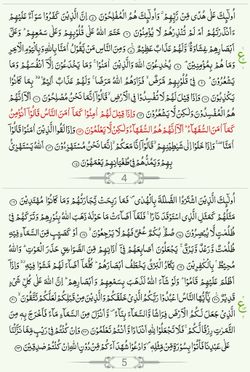 اُولٰٓئِكَ عَلٰى هُدًى مِّنْ رَّبِّهِمْ ۙ وَاُولٰٓئِكَ هُمُ الْمُفْلِحُوْنَ ۝ اِنَّ الَّذِيْنَ كَفَرُوْا سَوَآءٌ عَلَيْهِمْ
ءَاَنْذَرْتَهُمْ اَمْ لَمْ تُنْذِرْهُمْ لَا يُؤْمِنُوْنَ ۝ خَتَمَ اللّٰهُ عَلٰى قُلُوْبِهِمْ وَعَلٰى سَمْعِهِمْ ۭ وَعَلٰٓى
اَبْصَارِهِمْ غِشَاوَةٌ ۡ وَّلَهُمْ عَذَابٌ عَظِيْمٌ ۝ وَمِنَ النَّاسِ مَنْ يَّقُوْلُ اٰمَنَّا بِاللّٰهِ وَبِالْيَوْمِ الْاٰخِرِ
وَمَا هُمْ بِمُؤْمِنِيْنَ ۝ يُخٰدِعُوْنَ اللّٰهَ وَالَّذِيْنَ اٰمَنُوْا ۚ وَمَا يَخْدَعُوْنَ اِلَّآ اَنْفُسَهُمْ وَمَا
يَشْعُرُوْنَ ۝ فِيْ قُلُوْبِهِمْ مَّرَضٌ ۙ فَزَادَهُمُ اللّٰهُ مَرَضًا ۚ وَلَهُمْ عَذَابٌ اَلِيْمٌ ۢ بِمَا كَانُوْا
يَكْذِبُوْنَ ۝ وَاِذَا قِيْلَ لَهُمْ لَا تُفْسِدُوْا فِي الْاَرْضِ ۙ قَالُوْٓا اِنَّمَا نَحْنُ مُصْلِحُوْنَ ۝ اَلَآ اِنَّهُمْ
هُمُ الْمُفْسِدُوْنَ وَلٰكِنْ لَّا يَشْعُرُوْنَ ۝ وَاِذَا قِيْلَ لَهُمْ اٰمِنُوْا كَمَآ اٰمَنَ النَّاسُ قَالُوْٓا اَنُؤْمِنُ
كَمَآ اٰمَنَ السُّفَهَآءُ ۭ اَلَآ اِنَّهُمْ هُمُ السُّفَهَآءُ وَلٰكِنْ لَّا يَعْلَمُوْنَ ۝ وَاِذَا لَقُوا الَّذِيْنَ اٰمَنُوْا قَالُوْٓا
اٰمَنَّا ۚ وَاِذَا خَلَوْا اِلٰى شَيٰطِيْنِهِمْ ۙ قَالُوْٓا اِنَّا مَعَكُمْ ۙ اِنَّمَا نَحْنُ مُسْتَهْزِءُوْنَ ۝ اَللّٰهُ يَسْتَهْزِئُ
بِهِمْ وَيَمُدُّهُمْ فِيْ طُغْيَانِهِمْ يَعْمَهُوْنَ ۝
4
اُولٰٓئِكَ الَّذِيْنَ اشْتَرَوُا الضَّلٰلَةَ بِالْهُدٰى ۠ فَمَا رَبِحَتْ تِّجَارَتُهُمْ وَمَا كَانُوْا مُهْتَدِيْنَ ۝
مَثَلُهُمْ كَمَثَلِ الَّذِي اسْتَوْقَدَ نَارًا ۚ فَلَمَّآ اَضَآءَتْ مَا حَوْلَهٗ ذَهَبَ اللّٰهُ بِنُوْرِهِمْ وَتَرَكَهُمْ فِيْ
ظُلُمٰتٍ لَّا يُبْصِرُوْنَ ۝ صُمٌّۢ بُكْمٌ عُمْيٌ فَهُمْ لَا يَرْجِعُوْنَ ۝ اَوْ كَصَيِّبٍ مِّنَ السَّمَآءِ فِيْهِ
ظُلُمٰتٌ وَّرَعْدٌ وَّبَرْقٌ ۚ يَجْعَلُوْنَ اَصَابِعَهُمْ فِيْٓ اٰذَانِهِمْ مِّنَ الصَّوَاعِقِ حَذَرَ الْمَوْتِ ۭ وَاللّٰهُ
مُحِيْطٌۢ بِالْكٰفِرِيْنَ ۝ يَكَادُ الْبَرْقُ يَخْطَفُ اَبْصَارَهُمْ ۭ كُلَّمَآ اَضَآءَ لَهُمْ مَّشَوْا فِيْهِ ۙ وَاِذَآ
اَظْلَمَ عَلَيْهِمْ قَامُوْا ۭ وَلَوْ شَآءَ اللّٰهُ لَذَهَبَ بِسَمْعِهِمْ وَاَبْصَارِهِمْ ۭ اِنَّ اللّٰهَ عَلٰى كُلِّ شَيْءٍ
قَدِيْرٌ ۝ يٰٓاَيُّهَا النَّاسُ اعْبُدُوْا رَبَّكُمُ الَّذِيْ خَلَقَكُمْ وَالَّذِيْنَ مِنْ قَبْلِكُمْ لَعَلَّكُمْ تَتَّقُوْنَ ۝
الَّذِيْ جَعَلَ لَكُمُ الْاَرْضَ فِرَاشًا وَّالسَّمَآءَ بِنَآءً ۠ وَّاَنْزَلَ مِنَ السَّمَآءِ مَآءً فَاَخْرَجَ بِهٖ مِنَ
الثَّمَرٰتِ رِزْقًا لَّكُمْ ۚ فَلَا تَجْعَلُوْا لِلّٰهِ اَنْدَادًا وَّاَنْتُمْ تَعْلَمُوْنَ ۝ وَاِنْ كُنْتُمْ فِيْ رَيْبٍ مِّمَّا نَزَّلْنَا
عَلٰى عَبْدِنَا فَاْتُوْا بِسُوْرَةٍ مِّنْ مِّثْلِهٖ ۠ وَادْعُوْا شُهَدَآءَكُمْ مِّنْ دُوْنِ اللّٰهِ اِنْ كُنْتُمْ صٰدِقِيْنَ ۝
5